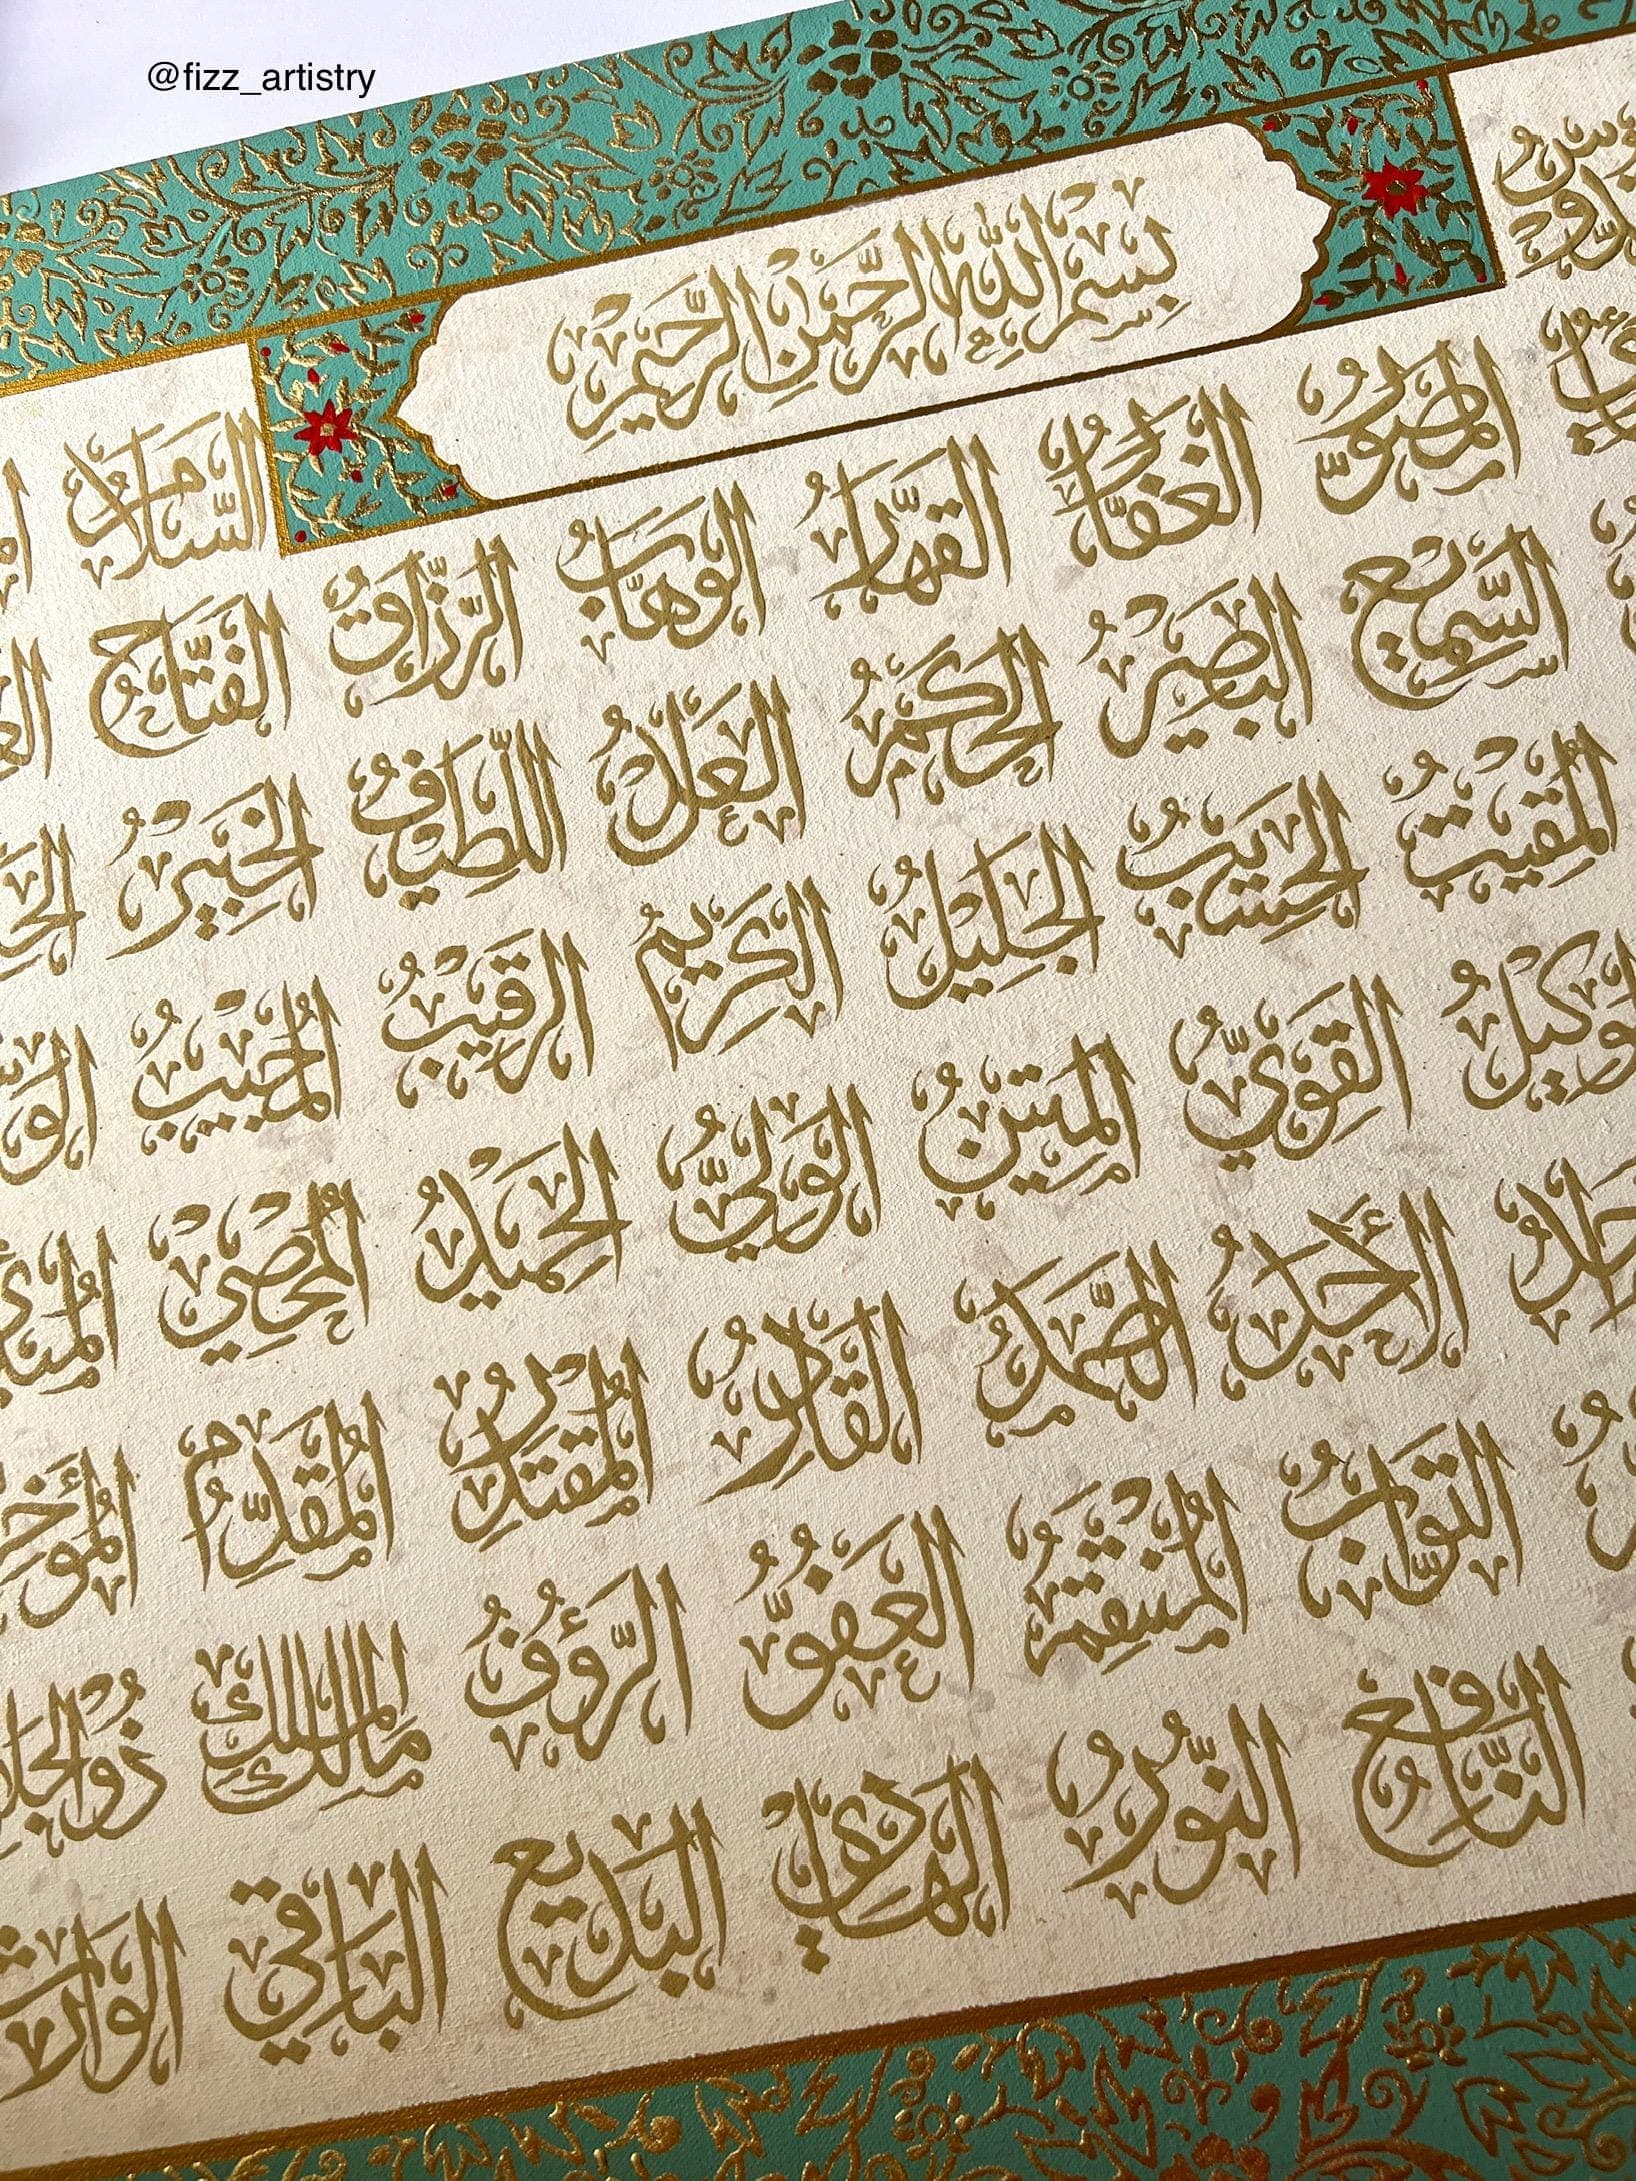 @fizz_artistry
بِسْمِ اللّٰهِ الرَّحْمٰنِ الرَّحِيْمِ
السَّلَامُ
الْمُصَوِّرُ الْغَفَّارُ الْقَهَّارُ الْوَهَّابُ الرَّزَّاقُ الْفَتَّاحُ
السَّمِيْعُ الْبَصِيْرُ الْحَكَمُ الْعَدْلُ اللَّطِيْفُ الْخَبِيْرُ
الْمُقِيْتُ الْحَسِيْبُ الْجَلِيْلُ الْكَرِيْمُ الرَّقِيْبُ الْمُجِيْبُ
الْوَكِيْلُ الْقَوِيُّ الْمَتِيْنُ الْوَلِيُّ الْحَمِيْدُ الْمُحْصِيْ
الْأَحَدُ الصَّمَدُ الْقَادِرُ الْمُقْتَدِرُ الْمُقَدِّمُ الْمُؤَخِّ
التَّوَّابُ الْمُنْتَقِمُ الْعَفُوُّ الرَّؤُفُ مَالِكُ الْمُلْكِ ذُو الْجَلَا
النَّافِعُ النُّوْرُ الْهَادِيْ الْبَدِيْعُ الْبَاقِيْ الْوَارِثُ